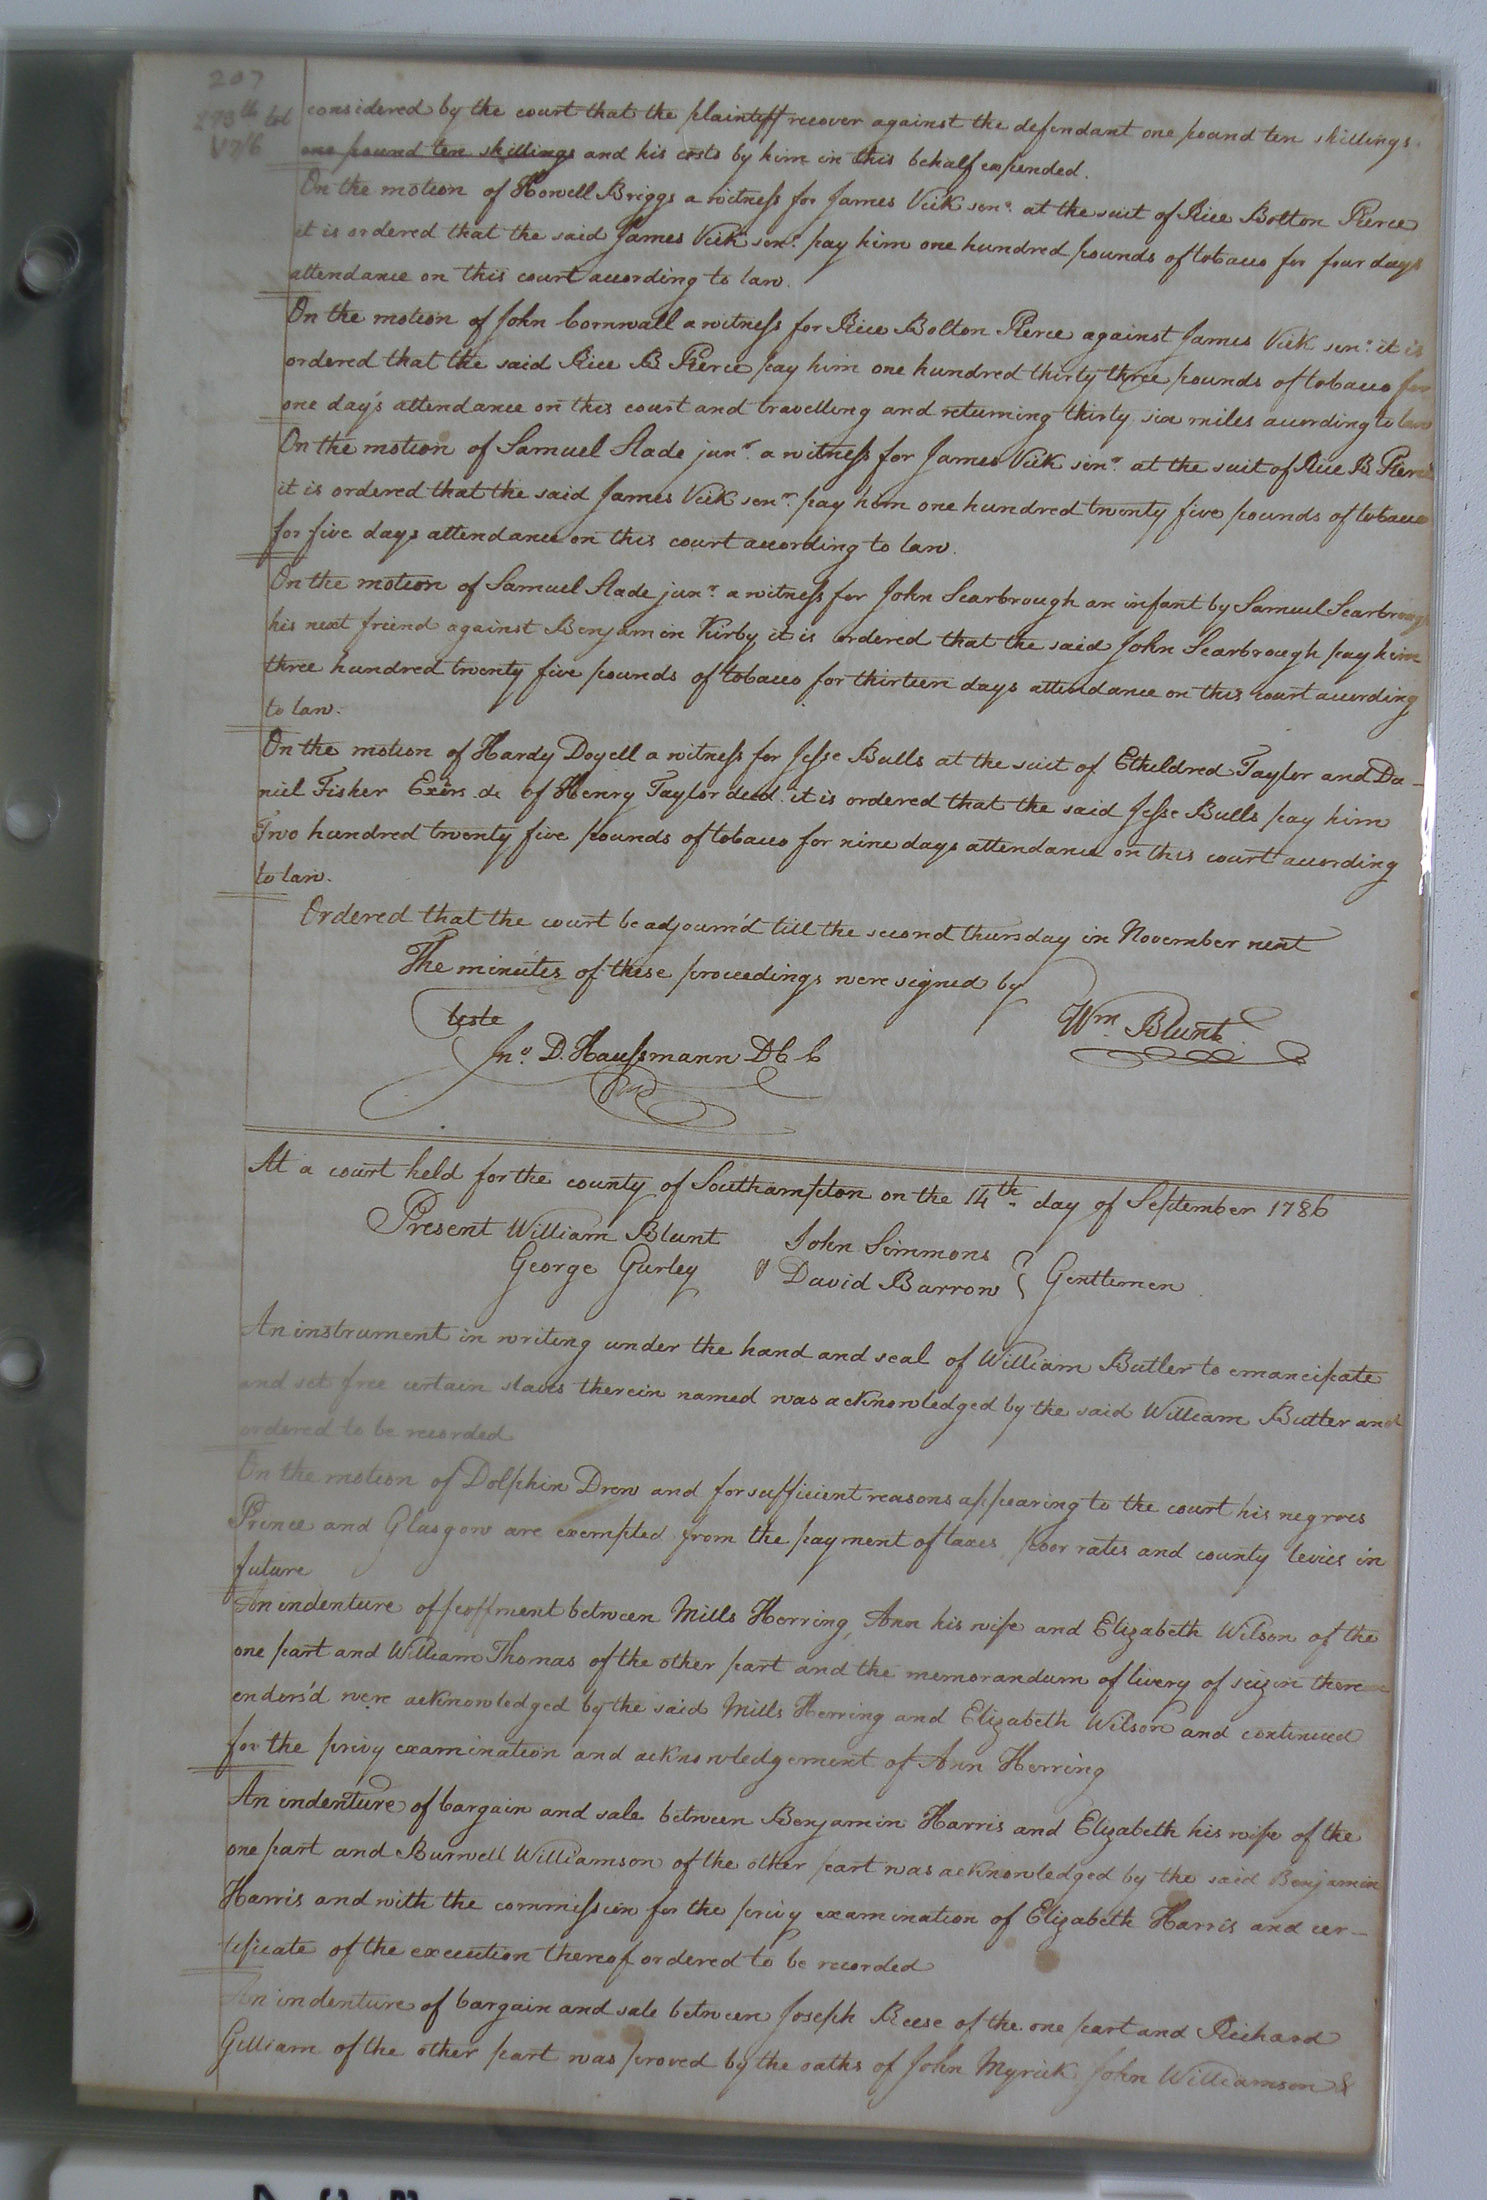 207
considered by the court that the plaintiff recover against the defendant one pound ten shillings
one pound ten shillings and his costs by him in this behalf expended.
On the motion of Howell Briggs a witness for James Vick senr. at the suit of Rice Bolton Pierce
it is ordered that the said James Vick senr. pay him one hundred pounds of tobacco for four days
attendance on this court according to law.
On the motion of John Cornwall a witness for Rice Bolton Pierce against James Vick senr. it is
ordered that the said Rice B Pierce pay him one hundred thirty three pounds of tobacco for
one day's attendance on this court and travelling and returning thirty six miles according to law
On the motion of Samuel Slade junr. a witness for James Vick senr. at the suit of Rice B Pierce
it is ordered that the said James Vick senr. pay him one hundred twenty five pounds of tobacco
for five days attendance on this court according to law.
On the motion of Samuel Slade junr. a witness for John Scarbrough an infant by Samuel Scarbrough
his next friend against Benjamin Kirby it is ordered that the said John Scarbrough pay him
three hundred twenty five pounds of tobacco for thirteen days attendance on this court according
to law.
On the motion of Hardy Doyell a witness for Jesse Bulls at the suit of Etheldred Taylor and Da-
niel Fisher Exōrs &c of Henry Taylor decd. it is ordered that the said Jesse Bulls pay him
Two hundred twenty five pounds of tobacco for nine days attendance on this court according
to law.
Ordered that the court be adjourn'd till the second thursday in November next
The minutes of these proceedings were signed by
teste
Wm. Blunt
Jno. D. Haussmann DCC
At a court held for the county of Southampton on the 14th. day of September 1786
Present William Blunt John Simmons
George Gurley & David Barrow } Gentlemen
An instrument in writing under the hand and seal of William Butler to emancipate
and set free certain slaves therein named was acknowledged by the said William Butler and
ordered to be recorded
On the motion of Dolphin Drew and for sufficient reasons appearing to the court his negroes
Prince and Glasgow are exempted from the payment of taxes, poor rates and county levies in
future
An indenture of feoffment between Mills Herring, Ann his wife and Elizabeth Wilson of the
one part and William Thomas of the other part and the memorandum of livery of seizin thereon
endors'd were acknowledged by the said Mills Herring and Elizabeth Wilson and continued
for the privy examination and acknowledgement of Ann Herring
An indenture of bargain and sale between Benjamin Harris and Elizabeth his wife of the
one part and Burwell Williamson of the other part was acknowledged by the said Benjamin
Harris and with the commission for the privy examination of Elizabeth Harris and cer-
tificate of the execution thereof ordered to be recorded
An indenture of bargain and sale between Joseph Beese of the one part and Richard
Gilliam of the other part was proved by the oaths of John Myrick John Williamson &